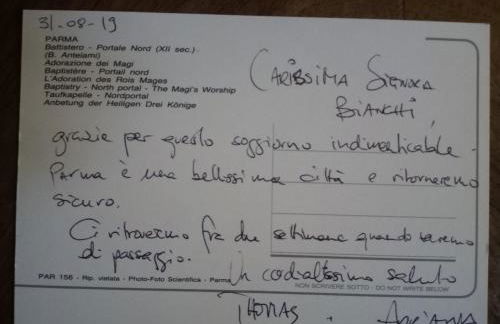 31-08-19
PARMA
Battistero - Portale Nord (XII sec.)
(B. Antelami)
Adorazione dei Magi
Baptistère - Portail nord
L'Adoration des Rois Mages
Baptistry - North portal - The Magi's Worship
Taufkapelle - Nordportal
Anbetung der Heiligen Drei Könige
Carissima Signora
Bianchi,
grazie per questo soggiorno indimenticabile.
Parma è una bellissima città e ritorneremo
sicuro.
Ci ritroveremo fra due settimane quando saremo
di passaggio.
Un cordialissimo saluto
PAR 156 - Rip. vietata - Photo-Foto Scientifica - Parma
NON SCRIVERE SOTTO - DO NOT WRITE BELOW
Thomas